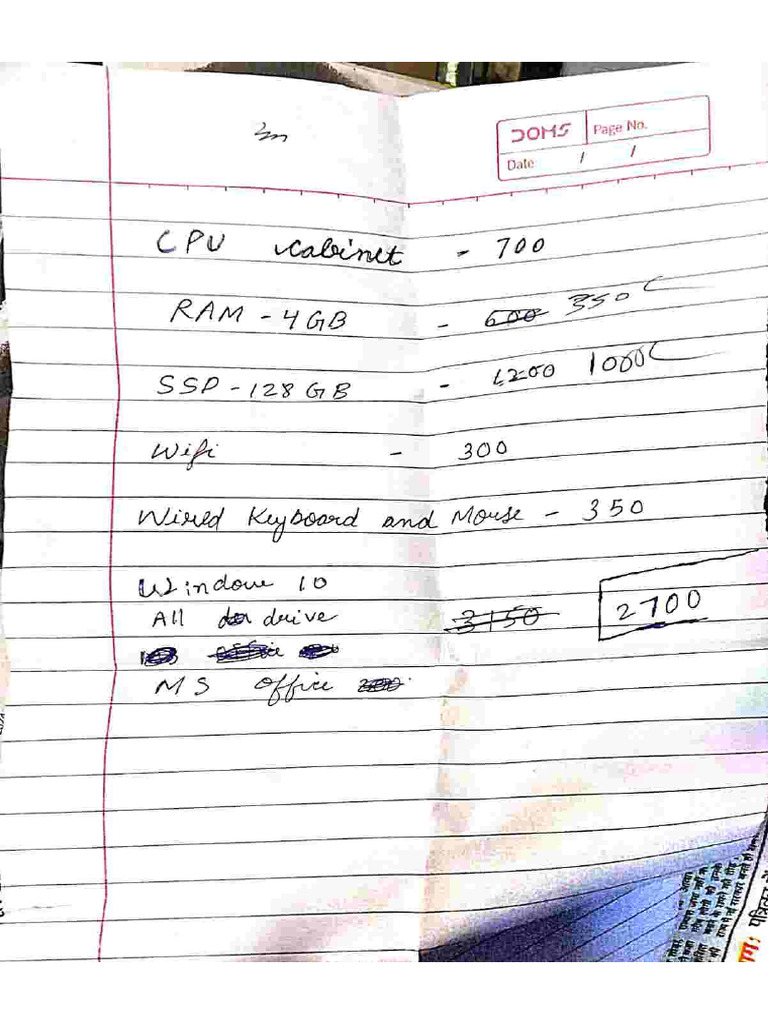 DOMS Page No.
Date / /
CPU cabinet - 700
RAM - 4GB - 600 350
SSD - 128 GB - 1200 1000
Wifi - 300
Wired Keyboard and Mouse - 350
Window 10
All drive 3150 2700
office
MS office